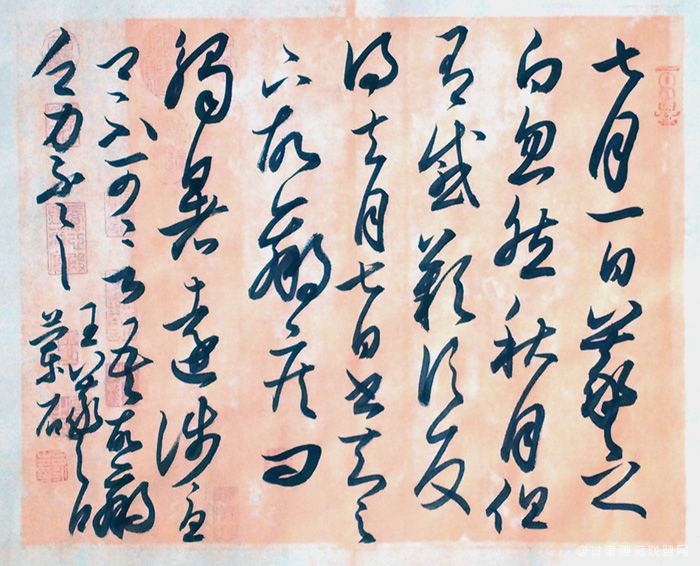 七月一日羲之
白忽然秋月但
有感歎信反
得去月七日書知足
下故羸疾問
觸暑遠涉憂
卿不可言吾故羸
乏力不具
王羲之白
蘭石